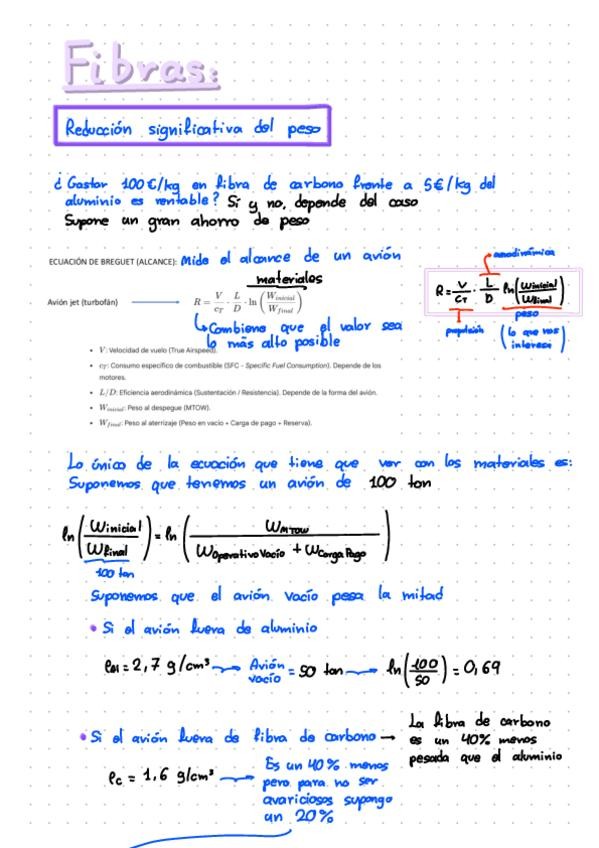 Fibras:
Reducción significativa del peso
¿Gastar 100€/kg en fibra de carbono frente a 5€/kg del
aluminio es rentable? Sí y no, depende del caso
Supone un gran ahorro de peso
ECUACIÓN DE BREGUET (ALCANCE): Mide el alcance de un avión
materiales
Avión jet (turbofán) → R = V/c_T · L/D · ln(W_inicial/W_final)
Conbiene que el valor sea
lo más alto posible
aerodinámica
R = V/C_T · L/D ln(W_inicial/W_final)
propulsión
peso
(lo que nos
interesa)
• V: Velocidad de vuelo (True Airspeed).
• c_T: Consumo específico de combustible (SFC - Specific Fuel Consumption). Depende de los
motores.
• L/D: Eficiencia aerodinámica (Sustentación / Resistencia). Depende de la forma del avión.
• W_inicial: Peso al despegue (MTOW).
• W_final: Peso al aterrizaje (Peso en vacío + Carga de pago + Reserva).
Lo único de la ecuación que tiene que ver con los materiales es:
Suponemos que tenemos un avión de 100 ton
ln(W_inicial/W_final) = ln(W_MTOW/(W_Operativo Vacío + W_Carga Pago))
100 ton
Suponemos que el avión vacío pesa la mitad
• Si el avión fuera de aluminio
ρ_Al = 2,7 g/cm³ → Avión vacío = 50 ton → ln(100/50) = 0,69
• Si el avión fuera de fibra de carbono →
La fibra de carbono
es un 40% menos
pesada que el aluminio
ρ_c = 1,6 g/cm³ →
Es un 40% menos
pero para no ser
avariciosos supongo
un 20%